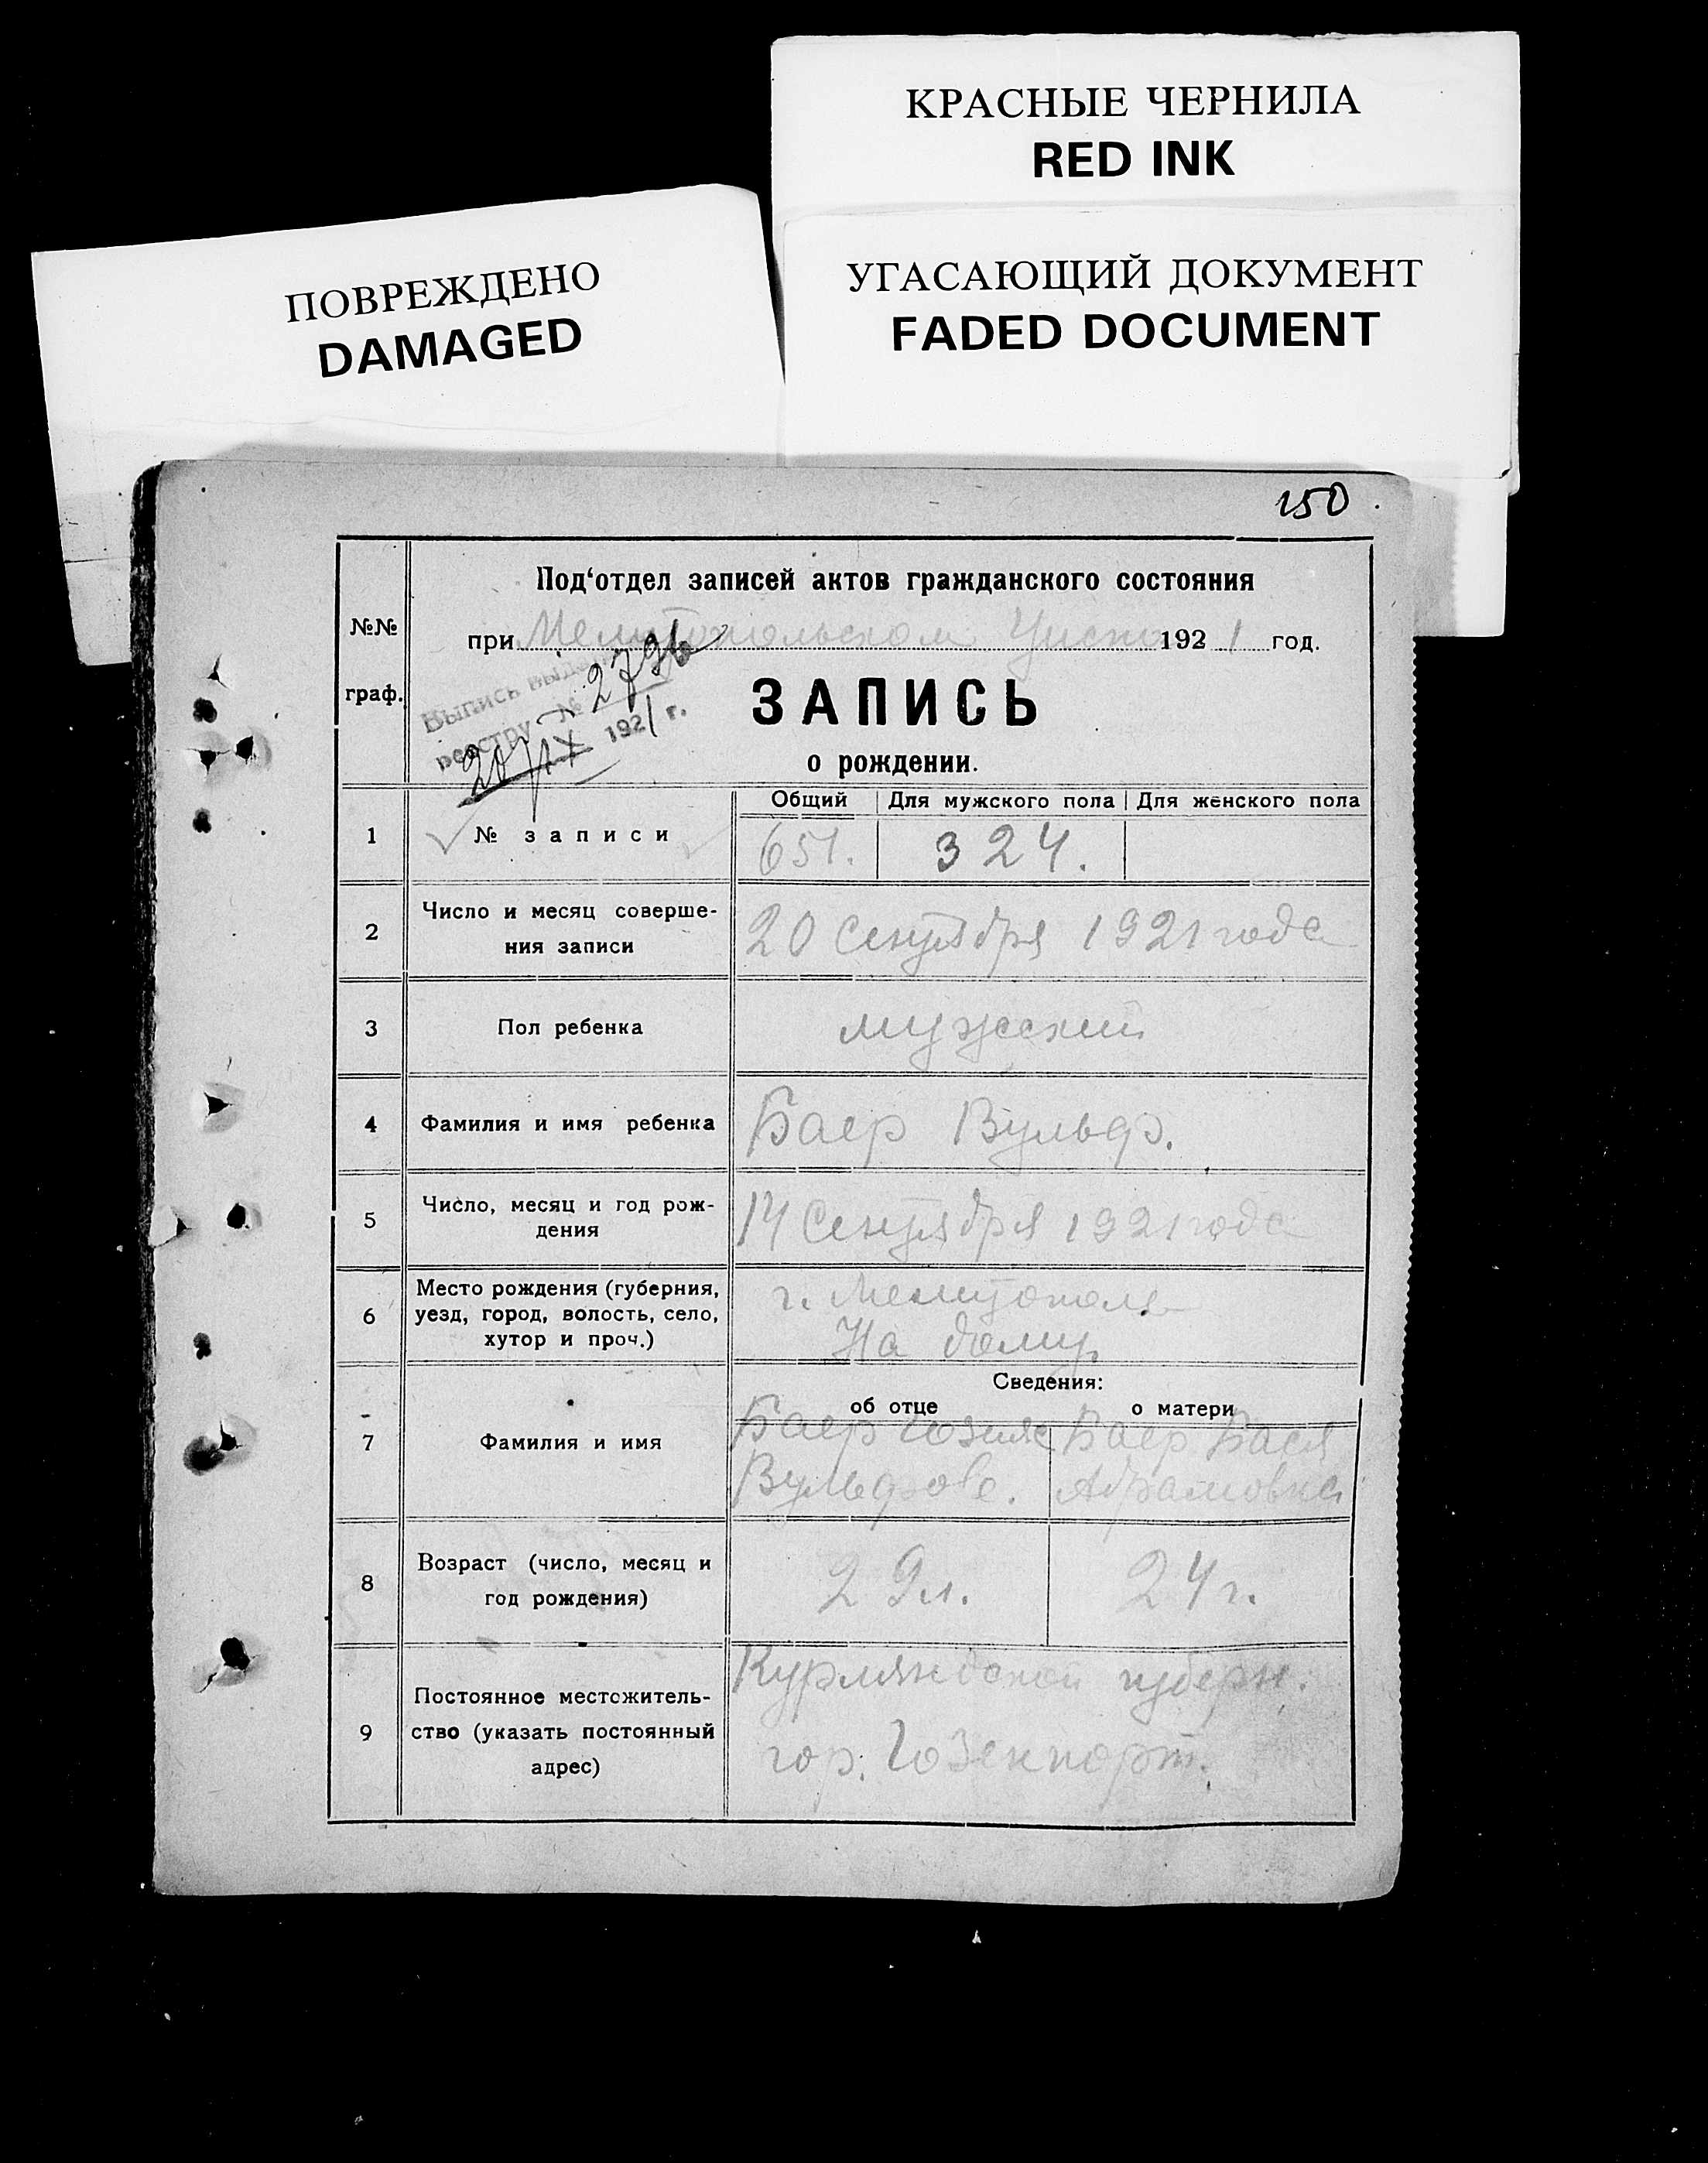 КРАСНЫЕ ЧЕРНИЛА
RED INK
УГАСАЮЩИЙ ДОКУМЕНТ
FADED DOCUMENT
ПОВРЕЖДЕНО
DAMAGED
150
№№ граф.
Под‘отдел записей актов гражданского состояния
при Мелитопольском 1921 год.
Выпись выдана
реестру № 2796
20/IX 1921 г.
ЗАПИСЬ
о рождении.
Общий Для мужского пола Для женского пола
1 № записи 651. 324.
2 Число и месяц соверше-
ния записи
20 Сентября 1921 года
3 Пол ребенка мужский
4 Фамилия и имя ребенка Баер Вульф.
5 Число, месяц и год рож-
дения
14 Сентября 1921 года
6 Место рождения (губерния,
уезд, город, волость, село,
хутор и проч.)
г. Мелитополь
На дому
Сведения:
об отце о матери
7 Фамилия и имя
Баер Баер Бася
Вульфов. Абрамовна
8 Возраст (число, месяц и
год рождения)
29 л. 24 г.
9 Постоянное местожитель-
ство (указать постоянный
адрес)
Курляндской губерн.
гор. Гозенпорт.